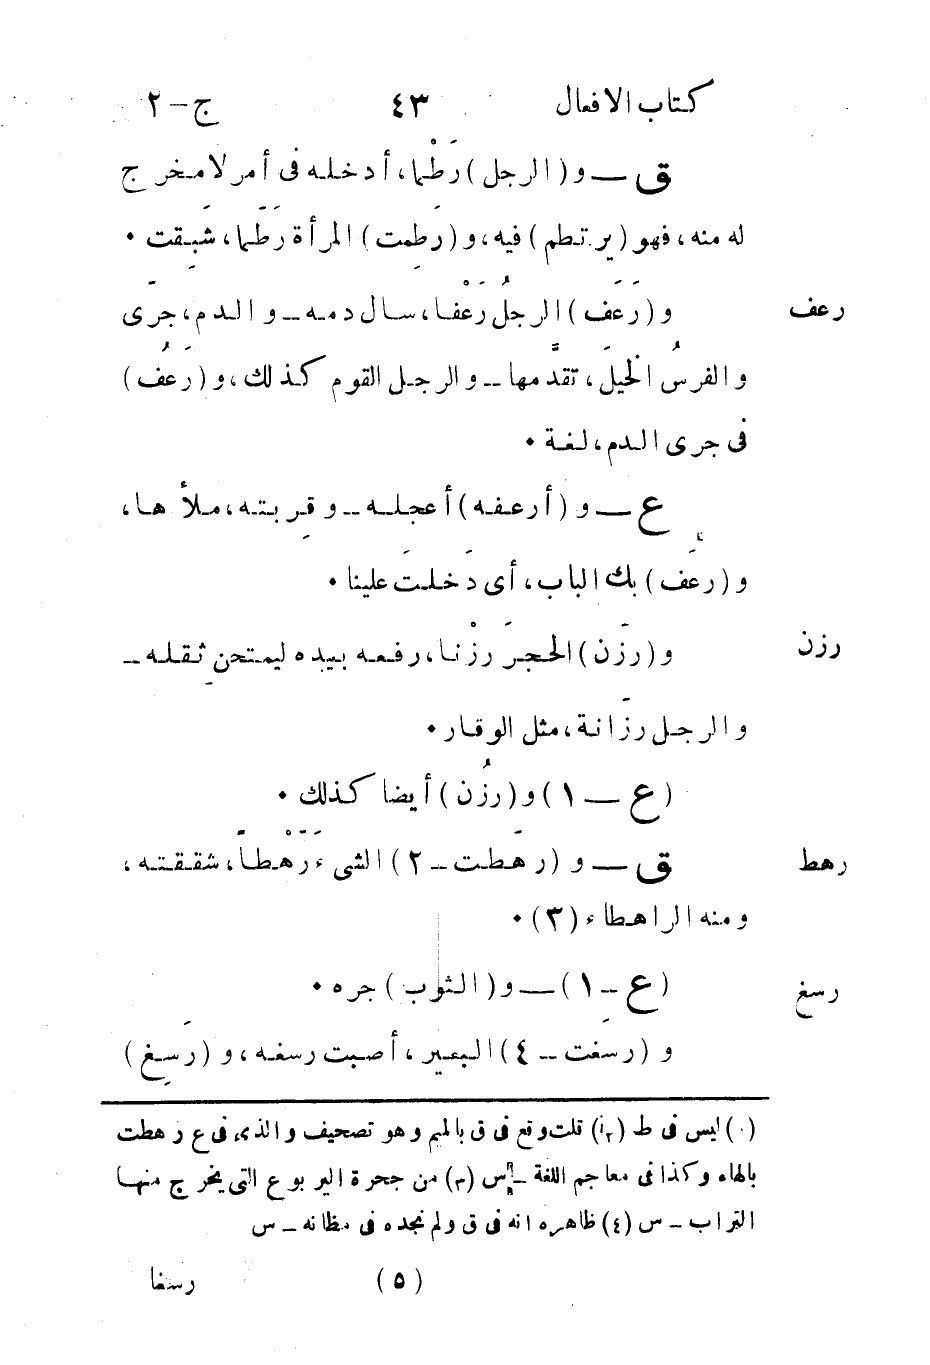 كتاب الافعال ٤٣ ج-٢
ق ــ و (الرجل) رَطْما، أدخله فى أمر لا مخرج
له منه، فهو (يرتطم) فيه، و (رَطِمت) المرأة رَطَما، شَبِقت •
رعف و (رَعَف) الرجلُ رَعْفا، سال دمه ــ والدم، جَرَى
والفرسُ الخيلَ، تقدّمها ــ والرجل القوم كذلك، و (رَعُف)
فى جرى الدم، لغة •
ع ــ و (أرعفه) أعجله ــ وقِربته، ملأها،
و (رعَف) بك الباب، أى دَخلتَ علينا •
رزن و (رزَن) الحجرَ رزْنا، رفعه بيده ليمتحن ثِقله ــ
والرجل رزَانة، مثل الوقار •
(ع ــ ١) و (رزُن) أيضا كذلك •
رهط ق ــ و (رهَطت ــ ٢) الشىء رَهْطاً، شققته،
ومنه الراهطاء (٣) •
(ع ــ ١) ــ و (الثوب) جره •
رسغ و (رسَغت ــ ٤) البعير، أصِبت رسغه، و (رَسِغ)
(٠) ليس فى ط (٢) قلت وقع فى ق بالميم وهو تصحيف والذى فى ع رهطت
بالهاء وكذا فى معاجم اللغة ــ س (٣) من جحرة اليربوع التى يخرج منها
التراب ــ س (٤) ظاهره انه فى ق ولم نجده فى مظانه ــ س
(٥) رسغا